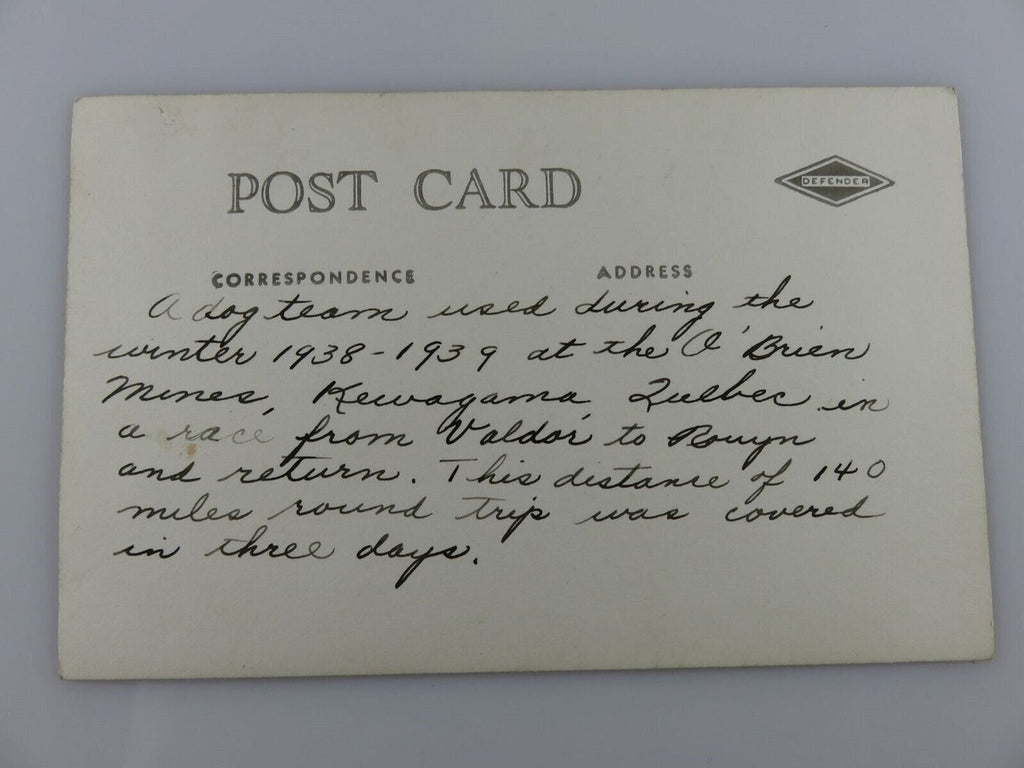 POST CARD
DEFENDER
CORRESPONDENCE ADDRESS
A dog team used during the
winter 1938-1939 at the O'Brien
Mines, Kewagama, Quebec in
a race from Valdor to Rouyn
and return. This distance of 140
miles round trip was covered
in three days.